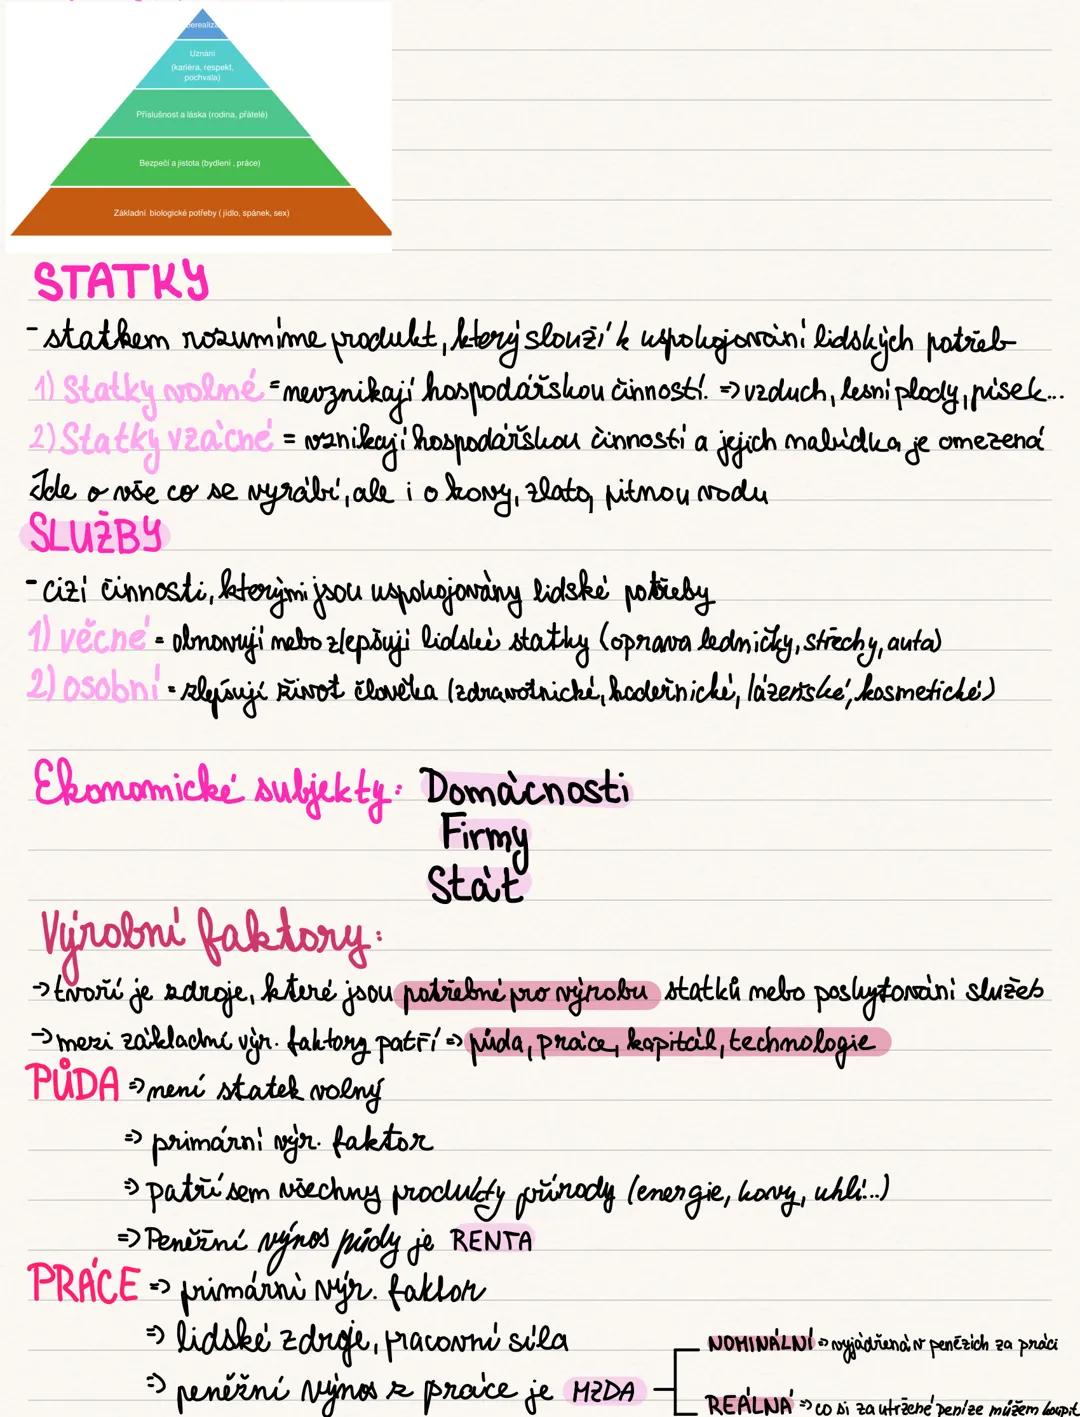 Uznání
(kariéra, respekt,
pochvala)
Příslušnost a láska (rodina, přátelé)
Bezpečí a jistota (bydlení , práce)
Základní biologické potřeby ( jídlo, spánek, sex)
STATKY
- statkem rozumíme produkt, který slouží k uspokojování lidských potřeb
1) Statky volné = nevznikají hospodářskou činností. => vzduch, lesní plody, písek...
2) Statky vzácné = vznikají hospodářskou činností a jejich nabídka je omezená
Jde o vše co se vyrábí, ale i o kovy, zlato, pitnou vodu
SLUŽBY
- cizí činnosti, kterými jsou uspokojovány lidské potřeby
1) věcné = obnovují nebo zlepšují lidské statky (oprava ledničky, střechy, auta)
2) osobní = zlepšují život člověka (zdravotnické, kadeřnické, lázeňské, kosmetické)
Ekonomické subjekty: Domácnosti
Firmy
Stát
Výrobní faktory:
-> tvoří je zdroje, které jsou potřebné pro výrobu statků nebo poskytování služeb
-> mezi základní výr. faktory patří => půda, práce, kapitál, technologie
PŮDA => není statek volný
=> primární výr. faktor
=> patří sem všechny produkty přírody (energie, kovy, uhlí...)
=> Peněžní výnos půdy je RENTA
PRÁCE => primární výr. faktor
=> lidské zdroje, pracovní síla
=> peněžní výnos z práce je MZDA
NOMINÁLNÍ => vyjádřená v penězích za práci
REÁLNÁ => co si za utržené peníze můžem koupit